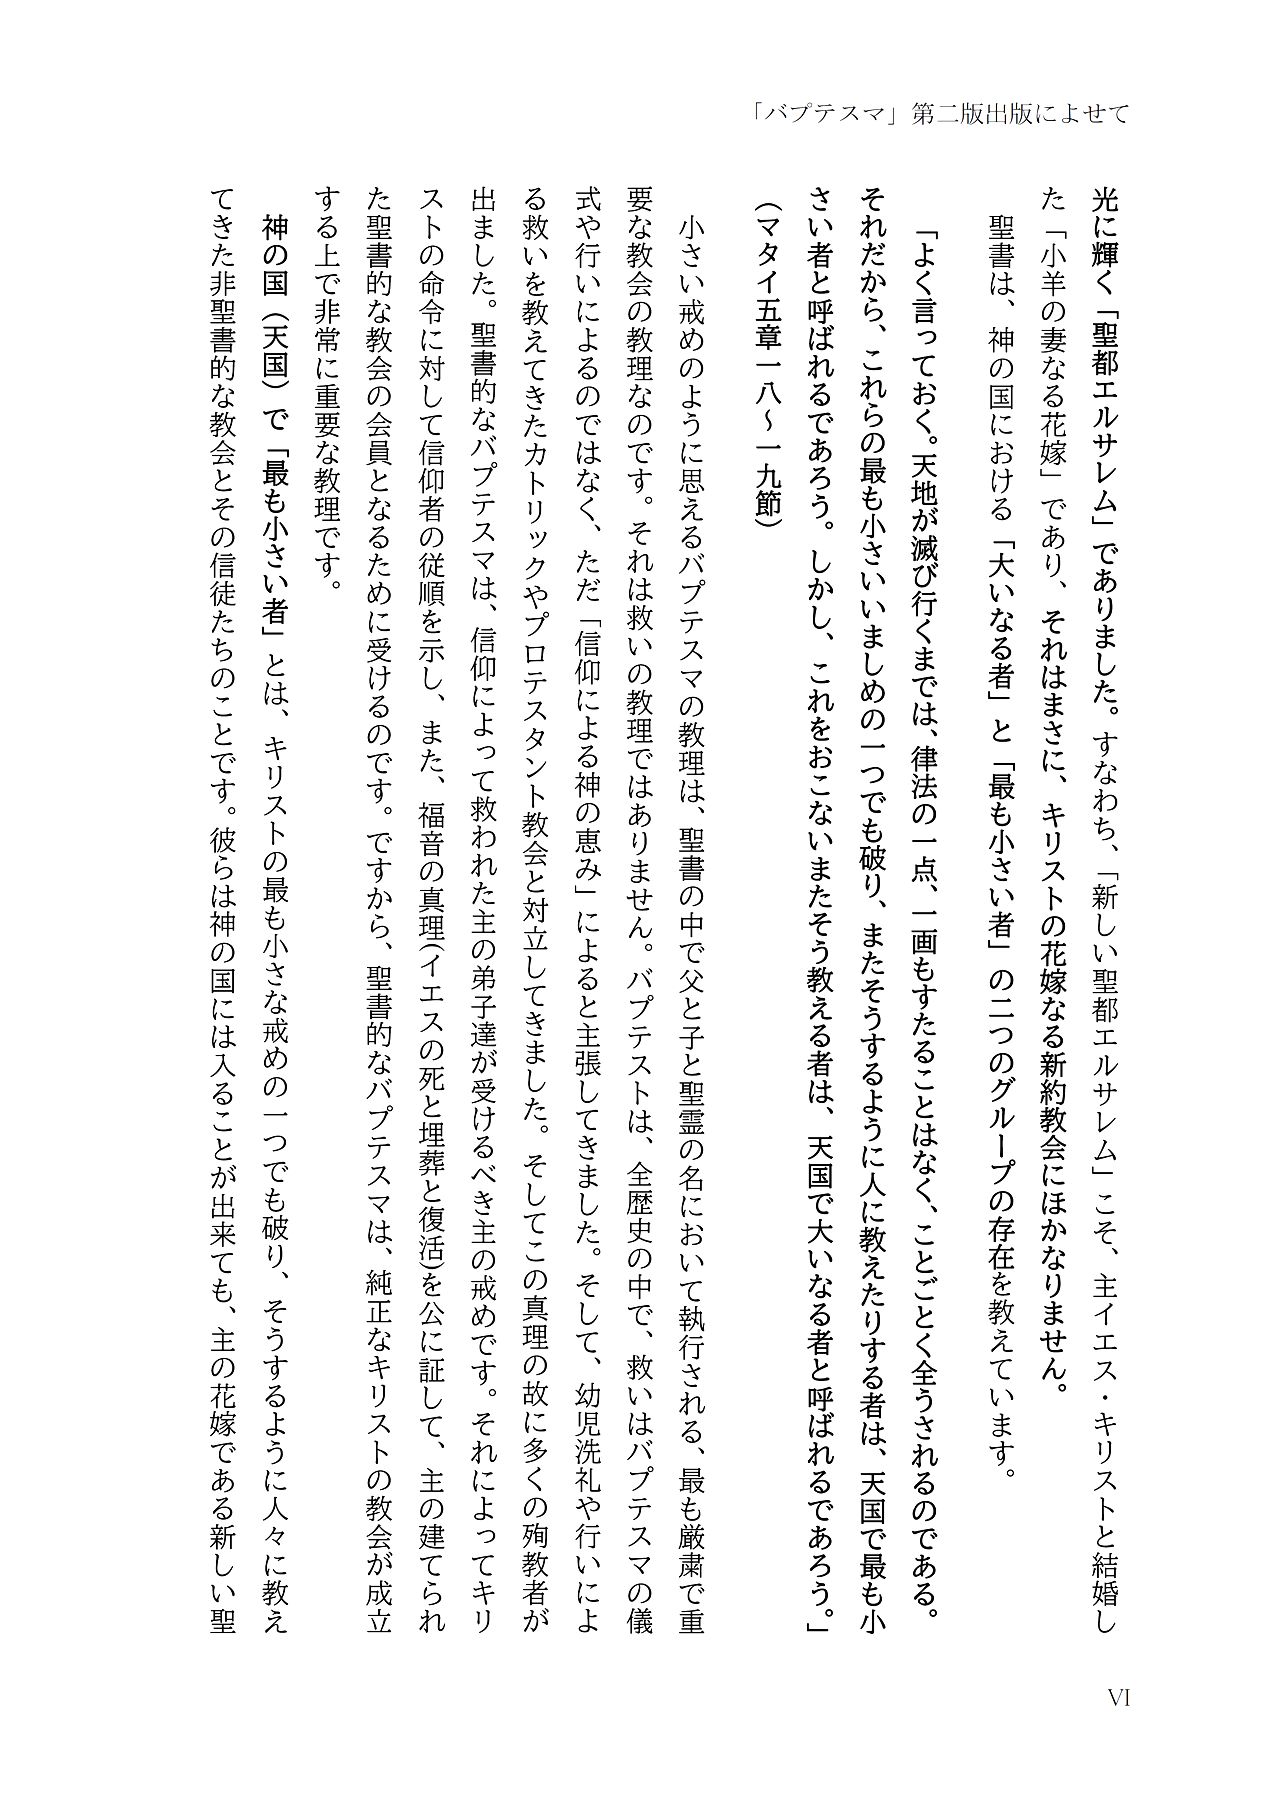 「バプテスマ」第二版出版によせて
光に輝く「聖都エルサレム」でありました。すなわち、「新しい聖都エルサレム」こそ、主イエス・キリストと結婚し
た「小羊の妻なる花嫁」であり、それはまさに、キリストの花嫁なる新約教会にほかなりません。
聖書は、神の国における「大いなる者」と「最も小さい者」の二つのグループの存在を教えています。
「よく言っておく。天地が滅び行くまでは、律法の一点、一画もすたることはなく、ことごとく全うされるのである。
それだから、これらの最も小さいいましめの一つでも破り、またそうするように人に教えたりする者は、天国で最も小
さい者と呼ばれるであろう。しかし、これをおこないまたそう教える者は、天国で大いなる者と呼ばれるであろう。」
（マタイ五章一八～一九節）
小さい戒めのように思えるバプテスマの教理は、聖書の中で父と子と聖霊の名において執行される、最も厳粛で重
要な教会の教理なのです。それは救いの教理ではありません。バプテストは、全歴史の中で、救いはバプテスマの儀
式や行いによるのではなく、ただ「信仰による神の恵み」によると主張してきました。そして、幼児洗礼や行いによ
る救いを教えてきたカトリックやプロテスタント教会と対立してきました。そしてこの真理の故に多くの殉教者が
出ました。聖書的なバプテスマは、信仰によって救われた主の弟子達が受けるべき主の戒めです。それによってキリ
ストの命令に対して信仰者の従順を示し、また、福音の真理（イエスの死と埋葬と復活）を公に証して、主の建てられ
た聖書的な教会の会員となるために受けるのです。ですから、聖書的なバプテスマは、純正なキリストの教会が成立
する上で非常に重要な教理です。
神の国（天国）で「最も小さい者」とは、キリストの最も小さな戒めの一つでも破り、そうするように人々に教え
てきた非聖書的な教会とその信徒たちのことです。彼らは神の国には入ることが出来ても、主の花嫁である新しい聖
VI